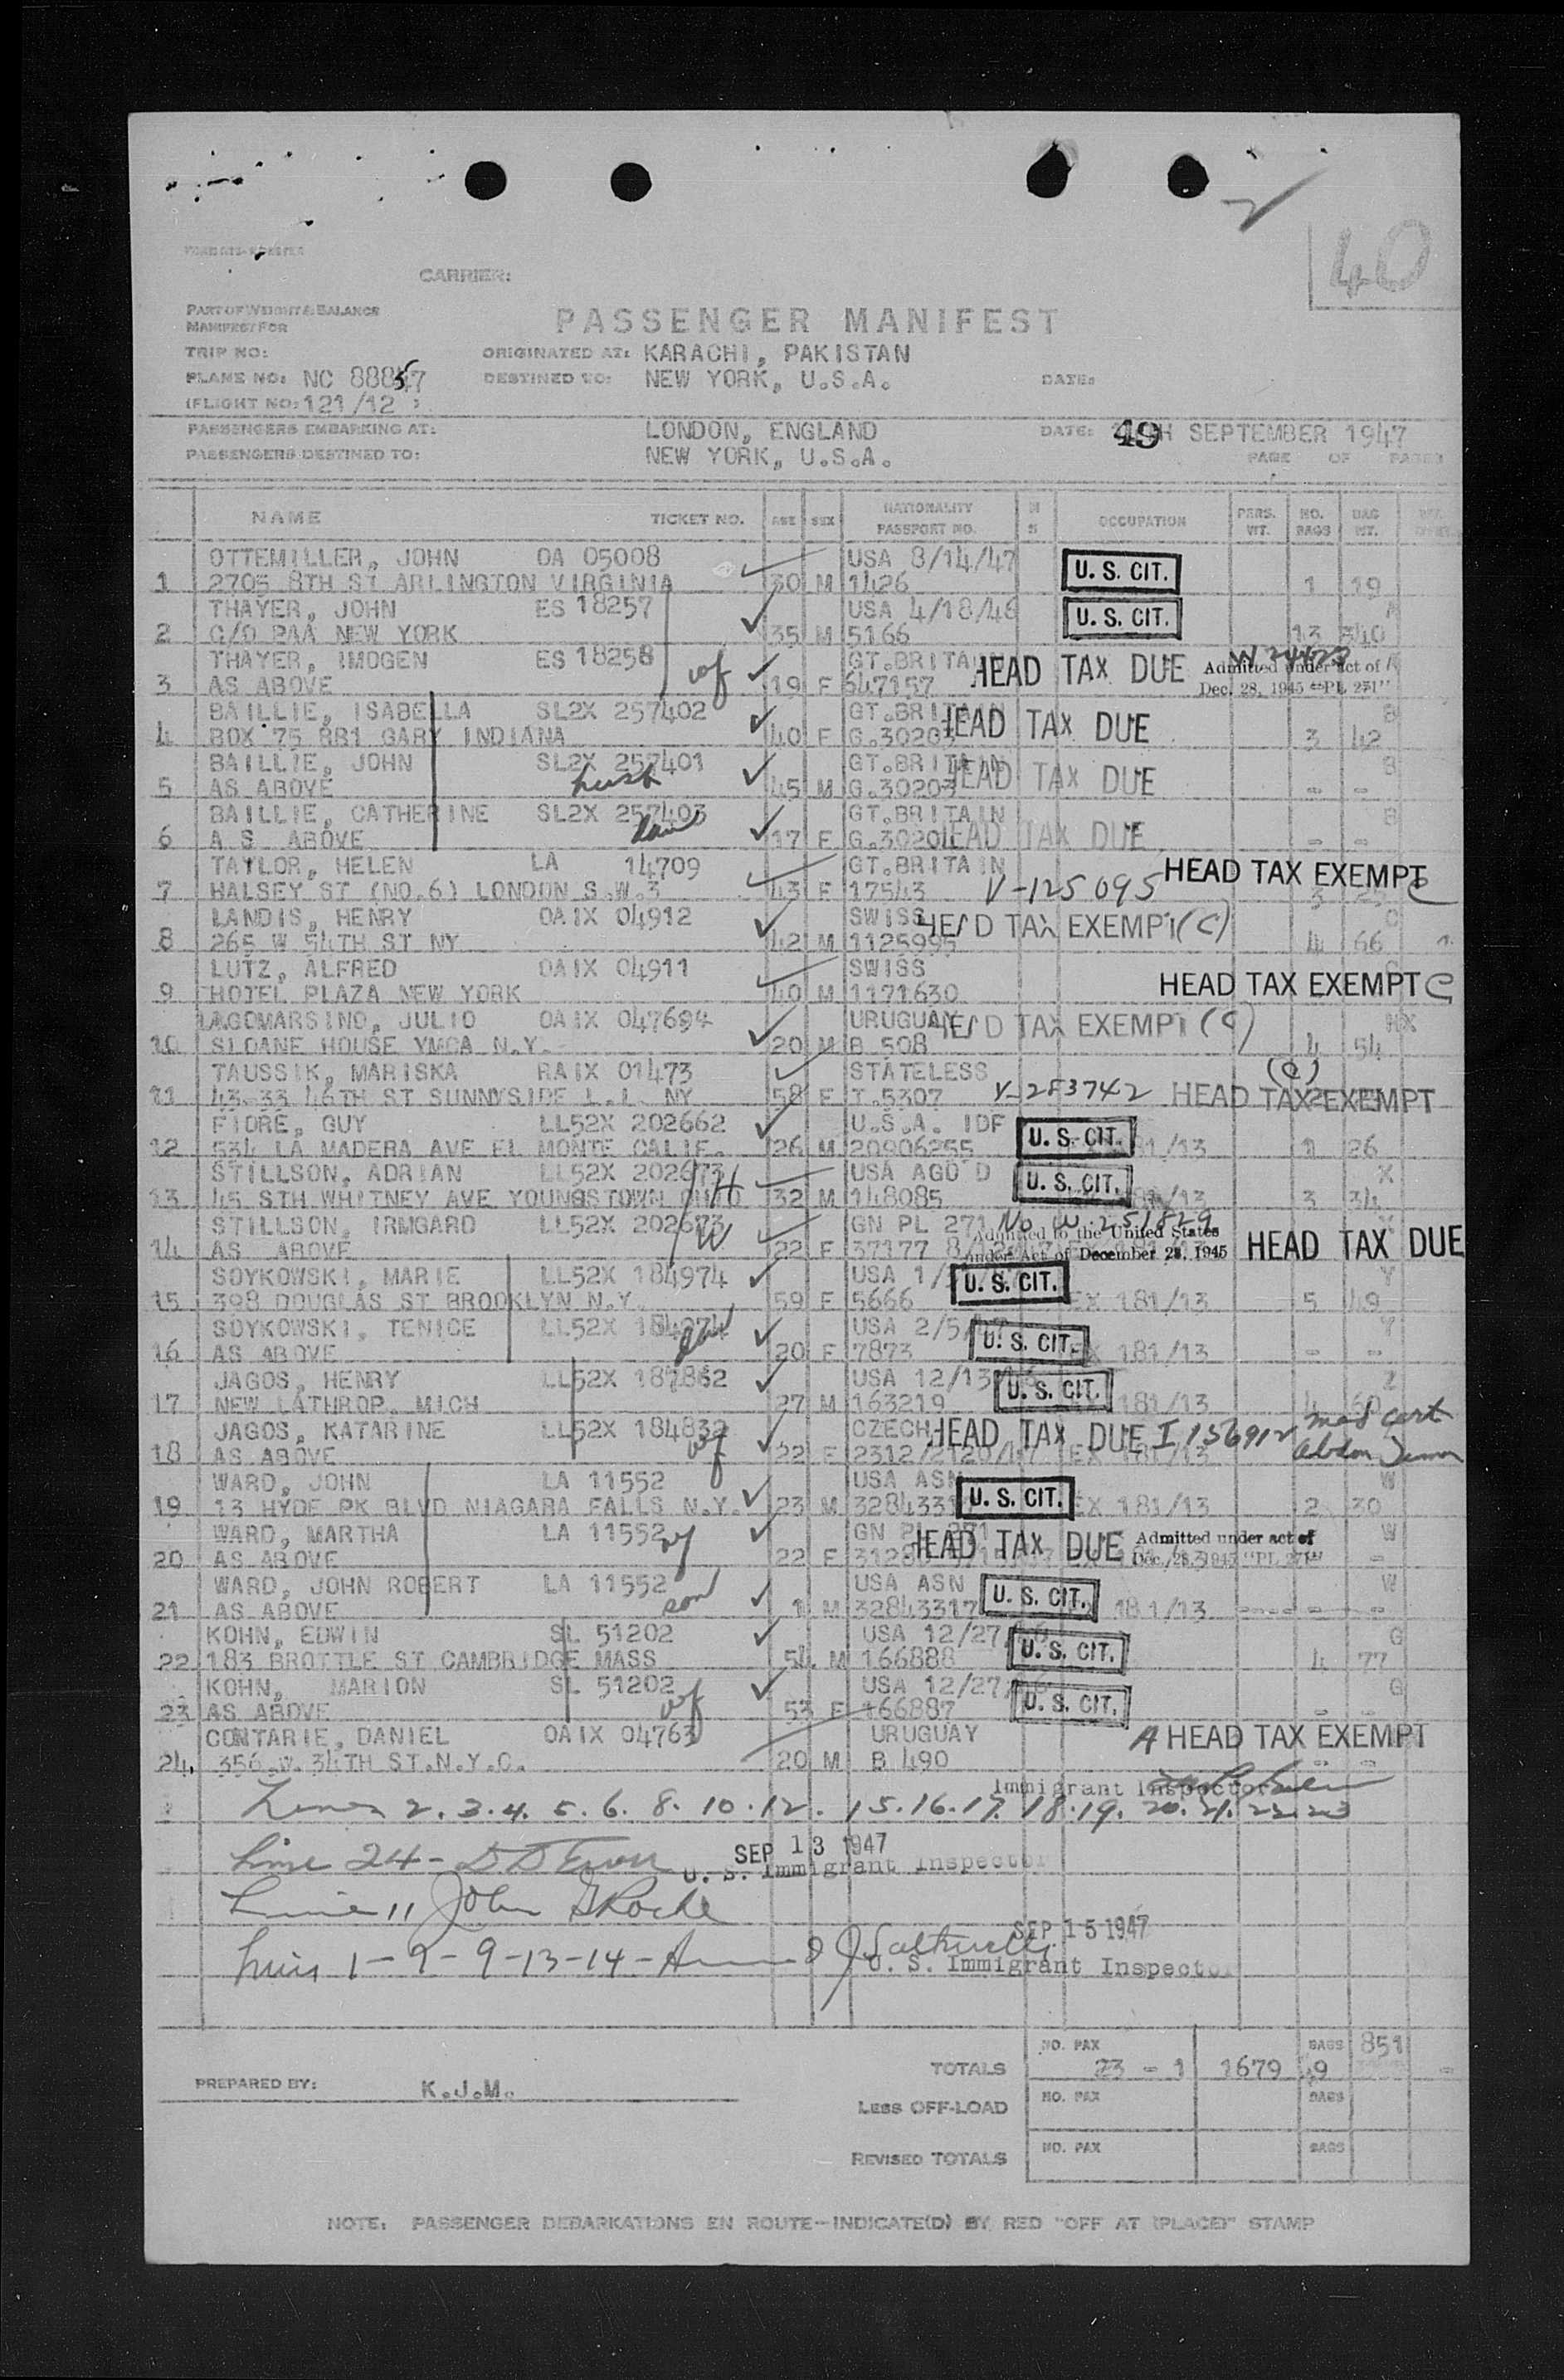 40
CARRIER:
PART OF WEIGHT & BALANCE
MANIFEST FOR
PASSENGER MANIFEST
TRIP NO:
ORIGINATED AT: KARACHI, PAKISTAN
PLANE NO: NC 88857
DESTINED TO: NEW YORK, U.S.A.
DATE:
(FLIGHT NO: 121/12 )
PASSENGERS EMBARKING AT: LONDON, ENGLAND
DATE: SEPTEMBER 1947
PASSENGERS DESTINED TO: NEW YORK, U.S.A.
PAGE OF PAGES
NAME TICKET NO. AGE SEX NATIONALITY PASSPORT NO. M S OCCUPATION PERS. WT. NO. BAGS BAG WT.
OTTEMILLER, JOHN OA 05008 USA 8/14/47 U. S. CIT.
1 2705 8TH ST ARLINGTON VIRGINIA 30 M 1426 1 19
THAYER, JOHN ES 18257 USA 4/18/46 U. S. CIT. A
2 C/O PAA NEW YORK 35 M 5166 13 340
THAYER, IMOGEN ES 18258 wf GT.BRITAIN HEAD TAX DUE Admitted under act of A
3 AS ABOVE 19 F 647157 Dec. 28, 1945 "PL 271"
BAILLIE, ISABELLA SL2X 257402 GT.BRITAIN HEAD TAX DUE B
4 BOX 75 RR1 GARY INDIANA 40 F G.30203 3 42
BAILLIE, JOHN SL2X 257401 GT.BRITAIN HEAD TAX DUE B
5 AS ABOVE husb 45 M G.30203 - -
BAILLIE, CATHERINE SL2X 257403 GT.BRITAIN HEAD TAX DUE B
6 A S ABOVE 17 F G.30204 - -
TAYLOR, HELEN LA 14709 GT.BRITAIN HEAD TAX EXEMPT C
7 HALSEY ST (NO.6) LONDON S.W.3 43 F 17543 V-125095 3
LANDIS, HENRY OAIX 04912 SWISS HEAD TAX EXEMPT (C) C
8 265 W 54TH ST NY 42 M 1125995 4 66
LUTZ, ALFRED OAIX 04911 SWISS HEAD TAX EXEMPT C
9 HOTEL PLAZA NEW YORK 40 M 1171630
LAGOMARSINO, JULIO OAIX 047694 URUGUAY HEAD TAX EXEMPT (C) HX
10 SLOANE HOUSE YMCA N.Y. 20 M B 508 4 54
TAUSSIK, MARISKA RAIX 01473 STATELESS (C)
11 43-33 46TH ST SUNNYSIDE L.I. NY 58 F T.5307 HEAD TAX EXEMPT
FIORE, GUY LL52X 202662 U.S.A. IDF U. S. CIT.
12 534 LA MADERA AVE EL MONTE CALIF. 26 M 20906255 181/13 1 26
STILLSON, ADRIAN LL52X 202673 H USA AGO D U. S. CIT. X
13 45 STH WHITNEY AVE YOUNGSTOWN OHIO 32 M 148085 181/13 3 34
STILLSON, IRMGARD LL52X 202673 W GN PL 271 No W 251829 Admitted to the United States
14 AS ABOVE 22 F 37177 under Act of December 28, 1945 HEAD TAX DUE
SOYKOWSKI, MARIE LL52X 184974 USA U. S. CIT. Y
15 398 DOUGLAS ST BROOKLYN N.Y. 59 F 5666 EX 181/13 5 49
SOYKOWSKI, TENICE LL52X 184974 USA 2/5 U. S. CIT. Y
16 AS ABOVE 20 F 7873 EX 181/13 - -
JAGOS, HENRY LL52X 187862 USA 12/13 U. S. CIT. Z
17 NEW LATHROP, MICH 27 M 163219 181/13 4 60
JAGOS, KATARINE LL52X 184832 CZECH HEAD TAX DUE I 156912 med cert
18 AS ABOVE wf 22 F EX 181/13
WARD, JOHN LA 11552 USA ASN U. S. CIT. W
19 13 HYDE PK BLVD NIAGARA FALLS N.Y. 23 M 32843317 EX 181/13 2 30
WARD, MARTHA LA 11552 wf GN PL 271 HEAD TAX DUE Admitted under act of W
20 AS ABOVE 22 F Dec. 28, 1945 "PL 271" -
WARD, JOHN ROBERT LA 11552 USA ASN U. S. CIT. W
21 AS ABOVE son 1 M 32843317 181/13 - -
KOHN, EDWIN SL 51202 USA 12/27/46 U. S. CIT. G
22 183 BROTTLE ST CAMBRIDGE MASS 54 M 166888 4 77
KOHN, MARION SL 51202 USA 12/27/46 U. S. CIT. G
23 AS ABOVE wf 53 F 166887 - -
CONTARIE, DANIEL OAIX 04763 URUGUAY A HEAD TAX EXEMPT
24. 356.W.34TH ST.N.Y.C. 20 M B 490 - -
Immigrant Inspector
Lines 2.3.4.5.6.8.10.12.15.16.17.18.19.20.21.22.23
Line 24-
SEP 13 1947
U. S. Immigrant Inspector
Line 11 John Roche
SEP 15 1947
Lines 1-7-9-13-14-
U. S. Immigrant Inspector
TOTALS NO. PAX 23 - 1 1679 BAGS 49 851
PREPARED BY: K.J.M.
LESS OFF-LOAD NO. PAX BAGS
REVISED TOTALS NO. PAX BAGS
NOTE: PASSENGER DEBARKATIONS EN ROUTE—INDICATE(D) BY RED "OFF AT (PLACE)" STAMP